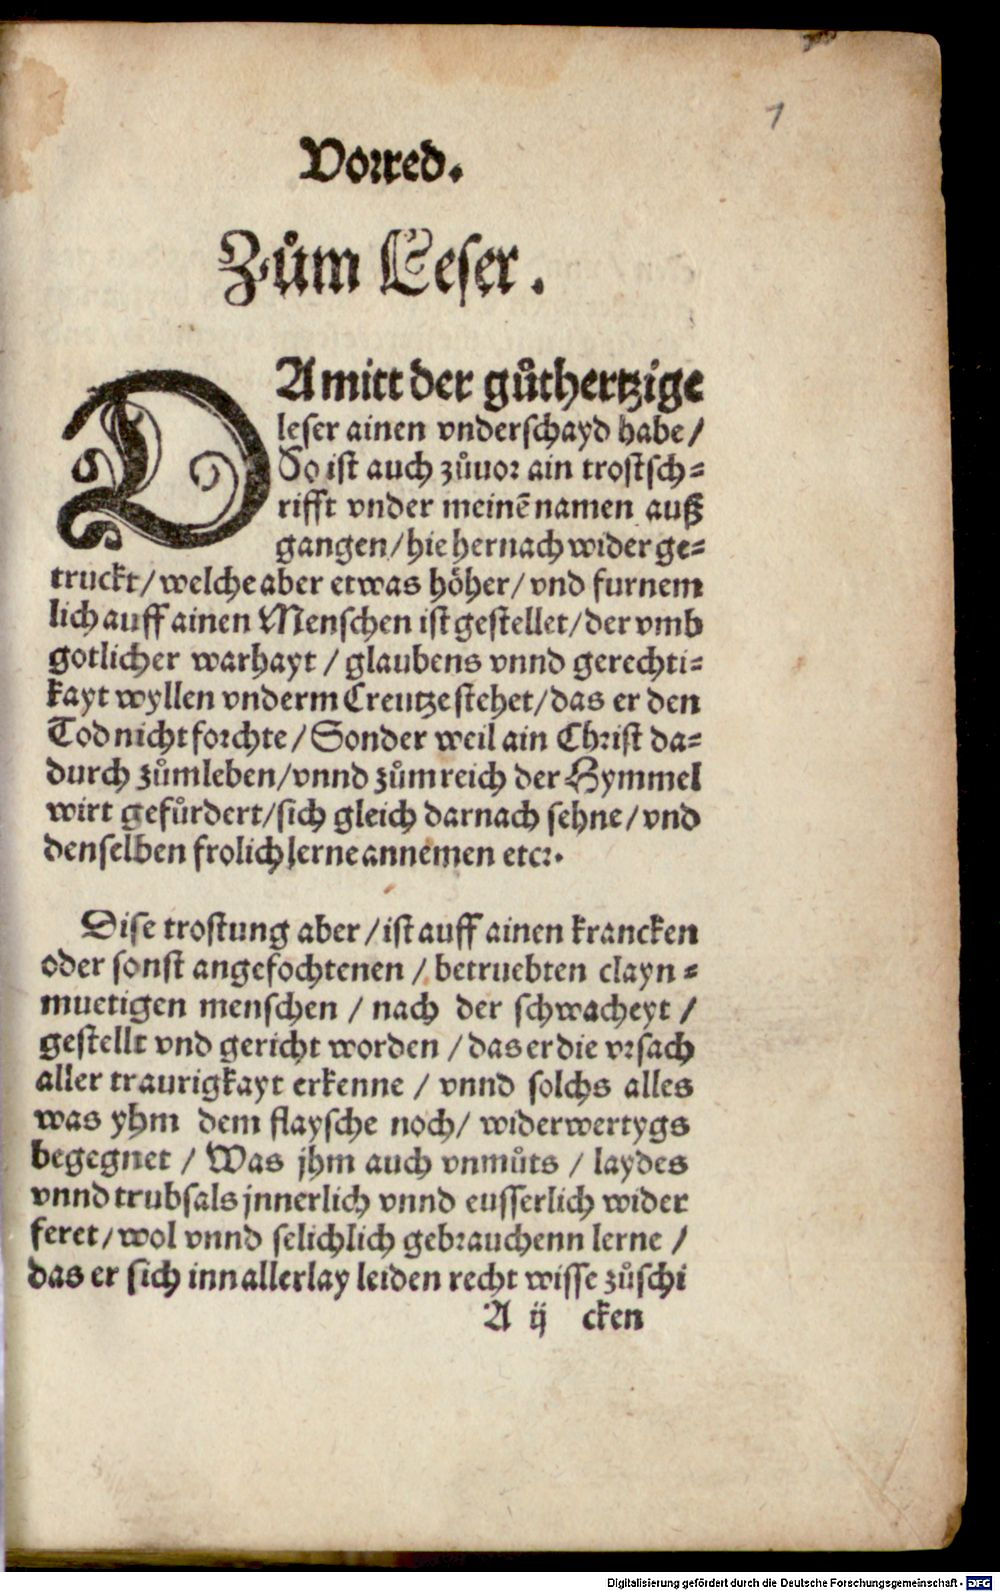 1
Vorred.
Zům Leser.
DAmitt der gůthertzige
leser ainen vnderschayd habe/
So ist auch zůuor ain trostsch-
rifft vnder meinē namen auß
gangen/hie hernach wider ge-
truckt/welche aber etwas höher/vnd furnem
lich auff ainen Menschen ist gestellet/der vmb
gotlicher warhayt / glaubens vnnd gerechti-
kayt wyllen vnderm Creutze stehet/das er den
Tod nicht forchte/Sonder weil ain Christ da-
durch zům leben/vnnd zům reich der Hymmel
wirt gefůrdert/sich gleich darnach sehne/vnd
denselben frolich lerne annemen etc.
Dise trostung aber/ist auff ainen krancken
oder sonst angefochtenen / betruebten clayn-
muetigen menschen / nach der schwacheyt /
gestellt vnd gericht worden /das er die vrsach
aller traurigkayt erkenne / vnnd solchs alles
was yhm dem flaysche noch/ widerwertygs
begegnet / Was jhm auch vnmůts / laydes
vnnd trubsals jnnerlich vnnd eusserlich wider
feret/wol vnnd selichlich gebrauchenn lerne /
das er sich inn allerlay leiden recht wisse zůschi
A ij cken
Digitalisierung gefördert durch die Deutsche Forschungsgemeinschaft - DFG